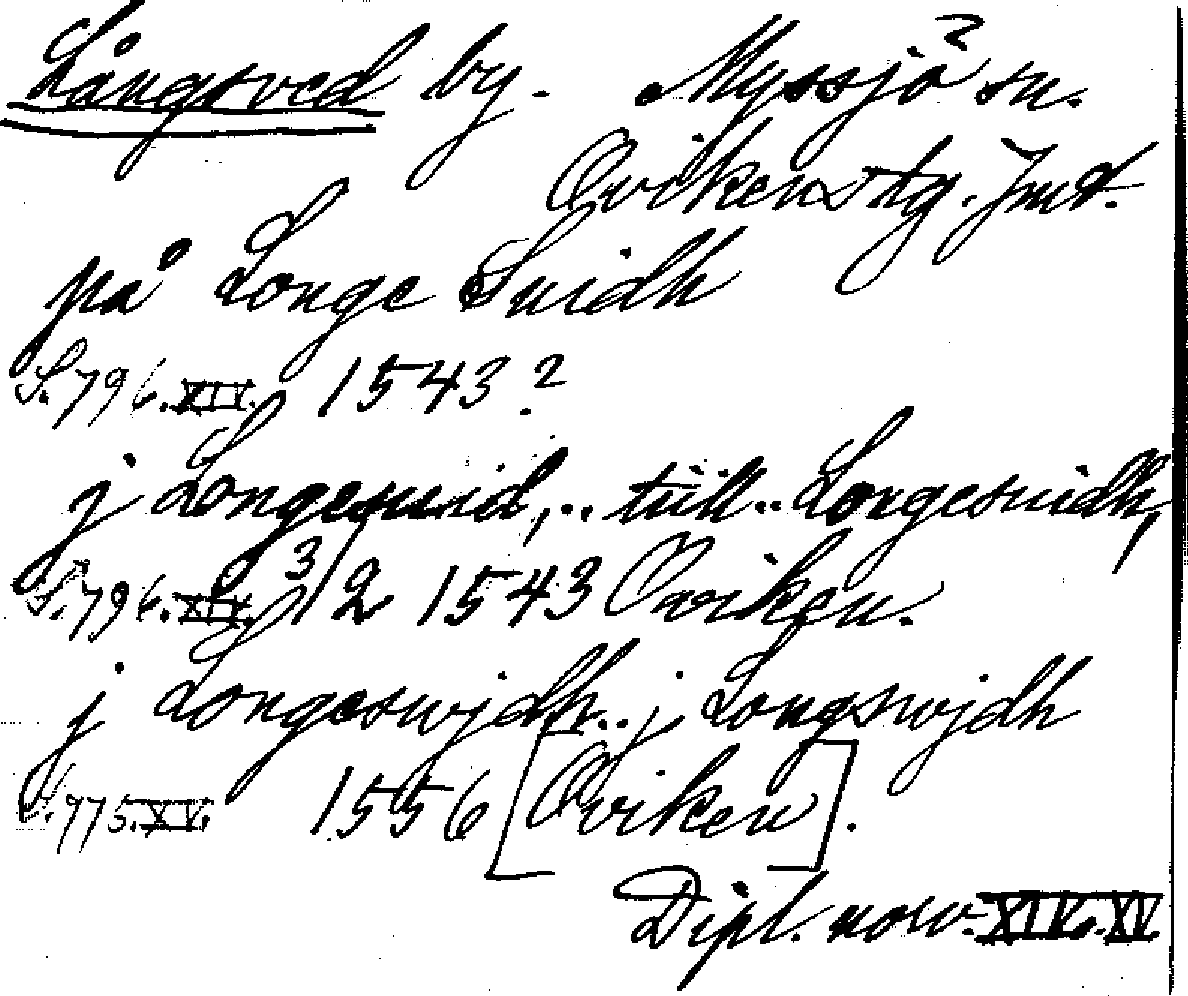 Långsved by. Myssjö sn.
Ovikens tg. Jmt.
på Longe Suidh
S. 796. XIV. 1543?
j Longesuid, .. tiill .. Longesuidh,
S. 796. XIV. 3/2 1543 Oviken.
j Longeswjdh .. j Longswjdh
S. 775. XV. 1556 [Oviken].
Dipl. norv. XIV. XV.